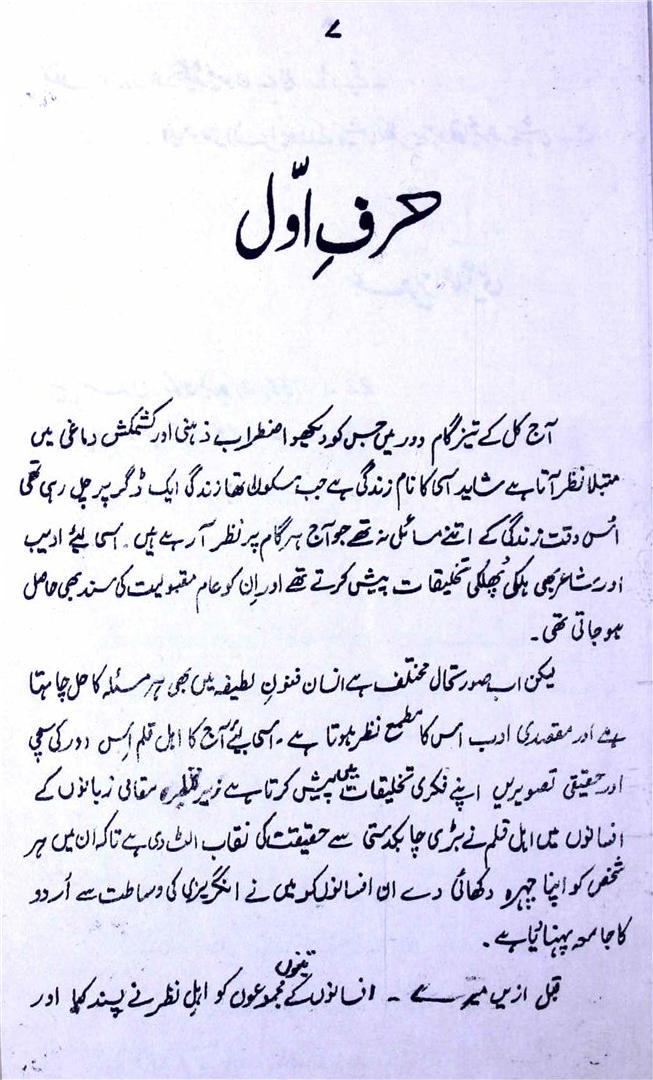 ۷
حرفِ اوّل
آج کل کے تیز گام دور میں جس کو دیکھو اضطراب ذہنی اور کشمکش دماغی میں
مبتلا نظر آتا ہے شاید اسی کا نام زندگی ہے جب سکولی تھا زندگی ایک ڈگر پر چل رہی تھی
اُس وقت زندگی کے اتنے مسائل نہ تھے جو آج ہر گام پر نظر آ رہے ہیں۔ اسی لیئے ادیب
اور شاعر بھی ہلکی پُھلکی تخلیقات پیش کرتے تھے اور اِن کو عام مقبولیت کی سند بھی حاصل
ہو جاتی تھی۔
لیکن اب صورتحال مختلف ہے انسان فنونِ لطیفہ میں بھی ہر مسئلہ کا حل چاہتا
ہے اور مقصدی ادب اس کا مطمع نظر ہوتا ہے۔ اسی لئے آج کا اہل قلم اِس دور کی سچی
اور حقیقی تصویریں اپنے فکری تخلیقات میں پیش کرتا ہے زیر نظر مقامی زبانوں کے
افسانوں میں اہل قلم نے بڑی چابکدستی سے حقیقت کی نقاب الٹ دی ہے تاکہ ان میں ہر
شخص کو اپنا چہرہ دکھائی دے ان افسانوں کو میں نے انگریزی کی وساطت سے اُردو
کا جامعہ پہنایا ہے۔
قبل ازیں میرے ۔ افسانوں کے تینوں مجموعوں کو اہلِ نظر نے پسند کیا اور